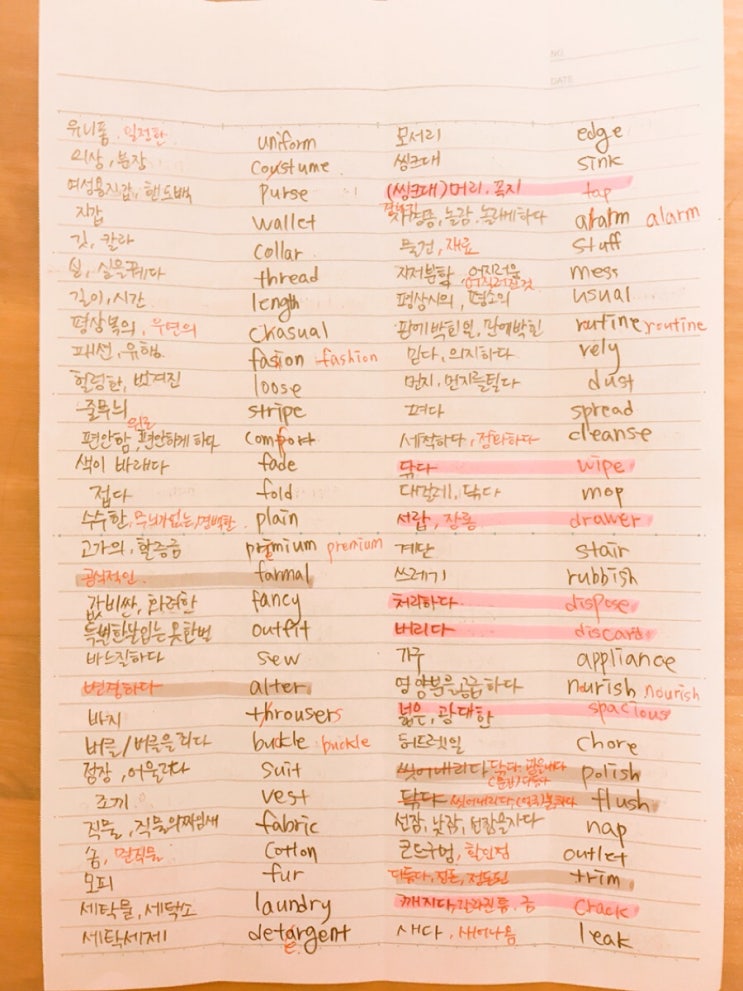 NO.
DATE
유니폼, 일정한 uniform
의상, 분장 coustume
여성용지갑, 핸드백 purse
지갑 wallet
깃, 칼라 collar
실, 실을꿰다 thread
길이, 시간 length
평상복의, 우연의 chasual
패션, 유행 fasion fashion
헐렁한, 벗겨진 loose
줄무늬 stripe
편안함, 위로 편안하게 하다 comport
색이 바래다 fade
접다 fold
수수한, 무늬가없는, 명백한 plain
고가의, 할증금 premium premium
공식적인 farmal
값비싼, 화려한 fancy
특별한날입는옷한벌 outfit
바느질하다 sew
변경하다 alter
바지 throusers
버클/버클을 buckle buckle
정장, 어울리다 suit
조끼 vest
직물, 직물의짜임새 fabric
솜, 면직물 cotton
모피 fur
세탁물, 세탁소 laundry
세탁세제 detargent
모서리 edge
씽크대 sink
(씽크대)머리, 꼭지 tap
자명종, 놀람, 놀라게하다 alarm alarm
물건, 재료 stuff
지저분함, 어지러움 어질러진것 mess
평상시의, 평소의 usual
판에박힌일, 판에박힌 routine routine
믿다, 의지하다 rely
먼지, 먼지를털다 dust
펴다 spread
세척하다, cleanse
닦다 wipe
대걸레, 닦다 mop
서랍, 장롱 drawer
계단 stair
쓰레기 rubbish
처리하다 dispose
버리다 discard
가구 appliance
영양분을공급하다 nourish nourish
넓은, 광대한 spacious
허드렛일 chore
씻어내리다 닦다 polish
닦다 씻어내리다, flush
선잠, 낮잠, nap
코드구멍, 할인점 outlet
다듬다, 정돈, 정돈된 trim
깨지다, 갈라진틈, 금 crack
새다, 새어나옴 leak